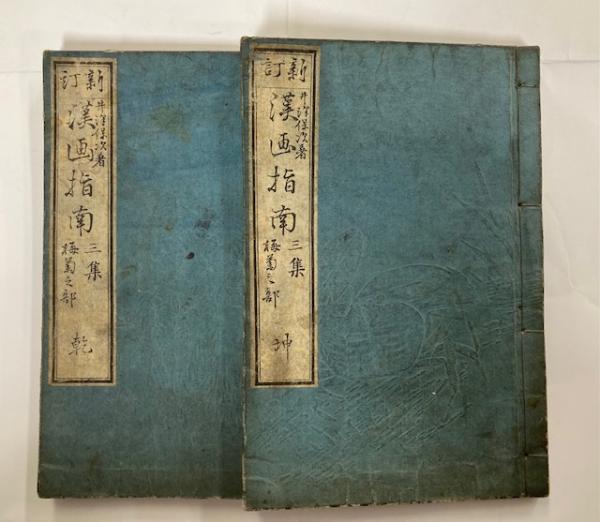 新訂
井澤保次著
漢画指南
三集
梅菊之部
乾
新訂
井澤保次著
漢画指南
三集
梅菊之部
坤